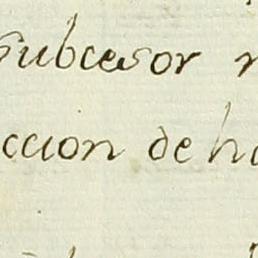 subcesor
ccion de